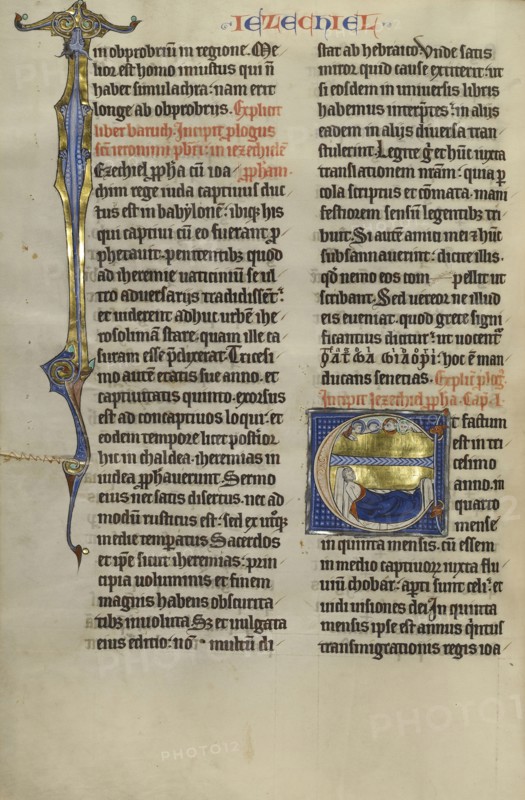 IEZECHIEL
in obprobriū in regione. Me
lior est homo iustus qui ñ
habet simulachra: nam erit
longe ab obprobrijs. Explicit
liber baruch. Incipit plogus
sc̄i ieronimi pb̄ri: in iezechielē
Ezechiel ꝓpha cū ioa ꝓpham.
chim rege iuda captiuus duc
tus est in babylonē: ibiqꝫ his
qui captiui cū eo fuerant ꝓ
phetauit. penitentibꝫ quod
ad iheremie uaticiniū se ul
tro aduersarijs tradidissēt:
et uiderent adhuc urbē ihe
rosolimā stare. quam ille ca
suram esse p̄dixerat. Tricesi
mo autē etatis sue anno. et
captiuitatis quinto. exorsus
est ad concaptiuos loqui. et
eodem tempore licet postior
hic in chaldea. iheremias in
iudea ꝓphauerunt. Sermo
eius nec satis disertus. nec ad
modū rusticus est: sed ex utqꝫ
medie temperatus. Sacerdos
et ip̄e sicut iheremias: prin
cipia uoluminis et finem
magnis habens obscurita
tibꝫ inuoluta. Sꝫ et uulgata
eius editio: nō multū di
stat ab hebraico. Unde satis
miror quid cause extiterit: ut
si eosdem in uniuersis libris
habemus interp̄tes: in alijs
eadem in alijs diuersa tran
stulerint. Legite ḡ et hūc iuxta
translationem nr̄am: quia ꝑ
cola scriptus et cōmata. mani
festiorem sensū legentibꝫ tri
buit. Si autē amici mei ⁊ hūc
subsannauerint: dicite illis.
qd̄ nemo eos com pellit ut
scribant. Sed uereor ne illud
eis eueniat. quod grece signi
ficantius dicitur: ut uocent
hoc ē man
ducans senecias. Explic̄ ploḡ.
Incipit Iezechiel ꝓpha. Cap. I.
Et factum
est in tri
cesimo
anno. in
quarto
mense
in quinta mensis. cū essem
in medio captiuoꝝ iuxta flu
uiū chobar: aꝑti sunt celi: et
uidi uisiones dei. In quinta
mensis ipse est annus qͥntus
transmigrationis regis ioa
PHOTO12
PHOTO12